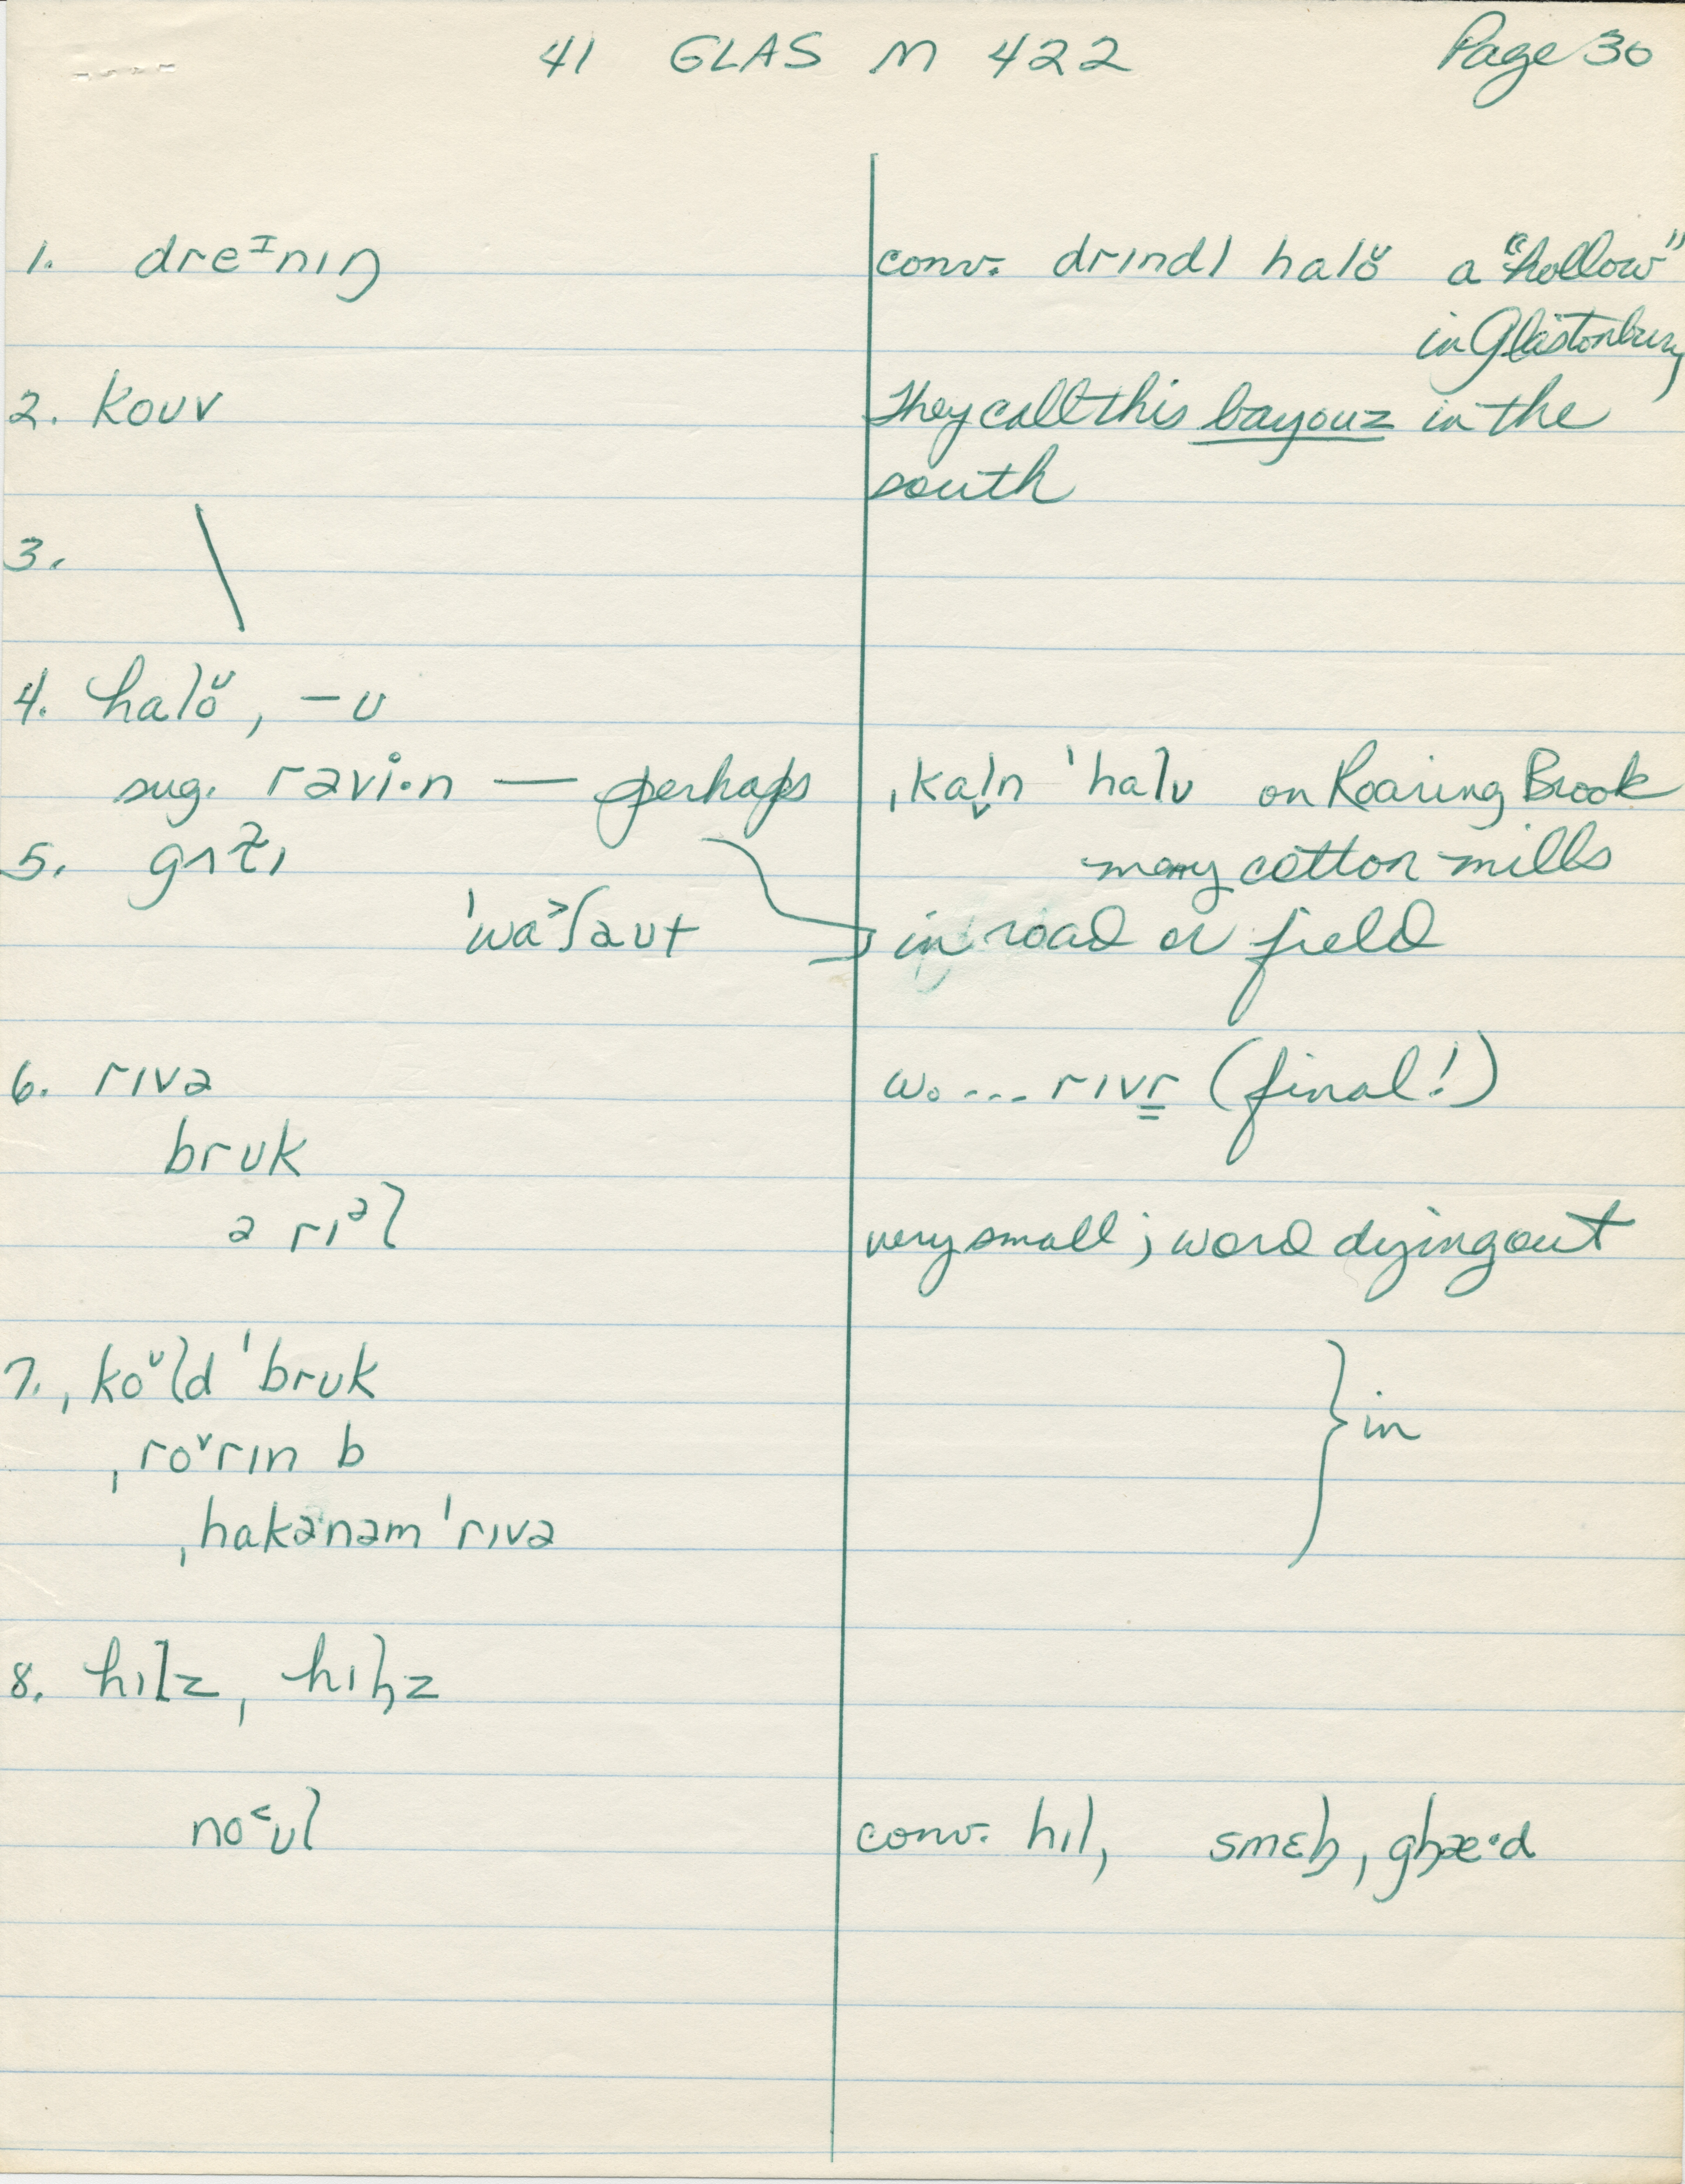 41 GLAS M 422 Page 30
1. dreᶦnɪŋ conv. drɪndl halo̮ a "hollow"
in Glastonbury
2. koʊv They call this bayouz in the
south
3. \
4. halo̮, –ʊ
sug. ravi·n — perhaps ˌkaln ˈhalʊ on Roaring Brook
5. gʌt̬ɪ many cotton mills
ˈwa˃ʃaʊt in road or field
6. rɪvə w. ... rɪvr (final!)
brʊk
ə rɪᵊl very small; word dying out
7. ˌkoᶷld ˈbrʊk } in
ˌro˅rɪn b
ˌhakənəm ˈrɪvə
8. hɪlz, hɪɫz
no˂ʊl conv. hɪl, smɛɫ, gɫæ·d